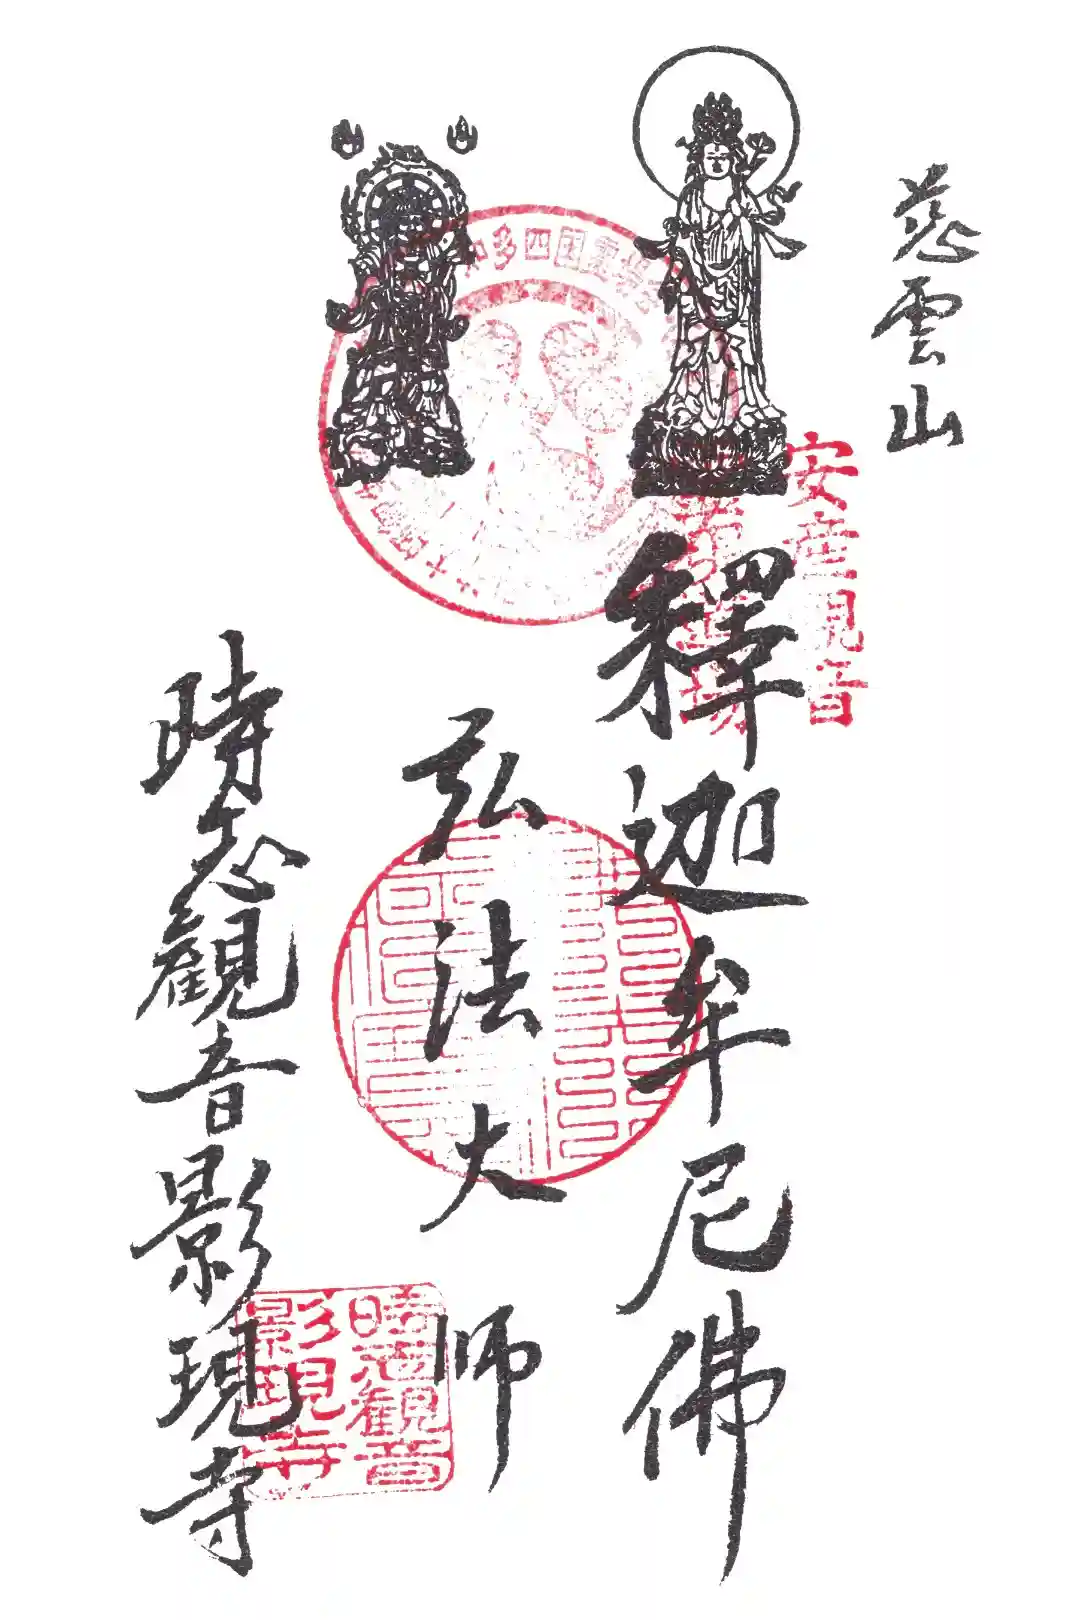 慈雲山
安産観音
釋迦牟尼佛
弘法大師
時志觀音影現寺
知多四国霊場
時志観音
影現寺